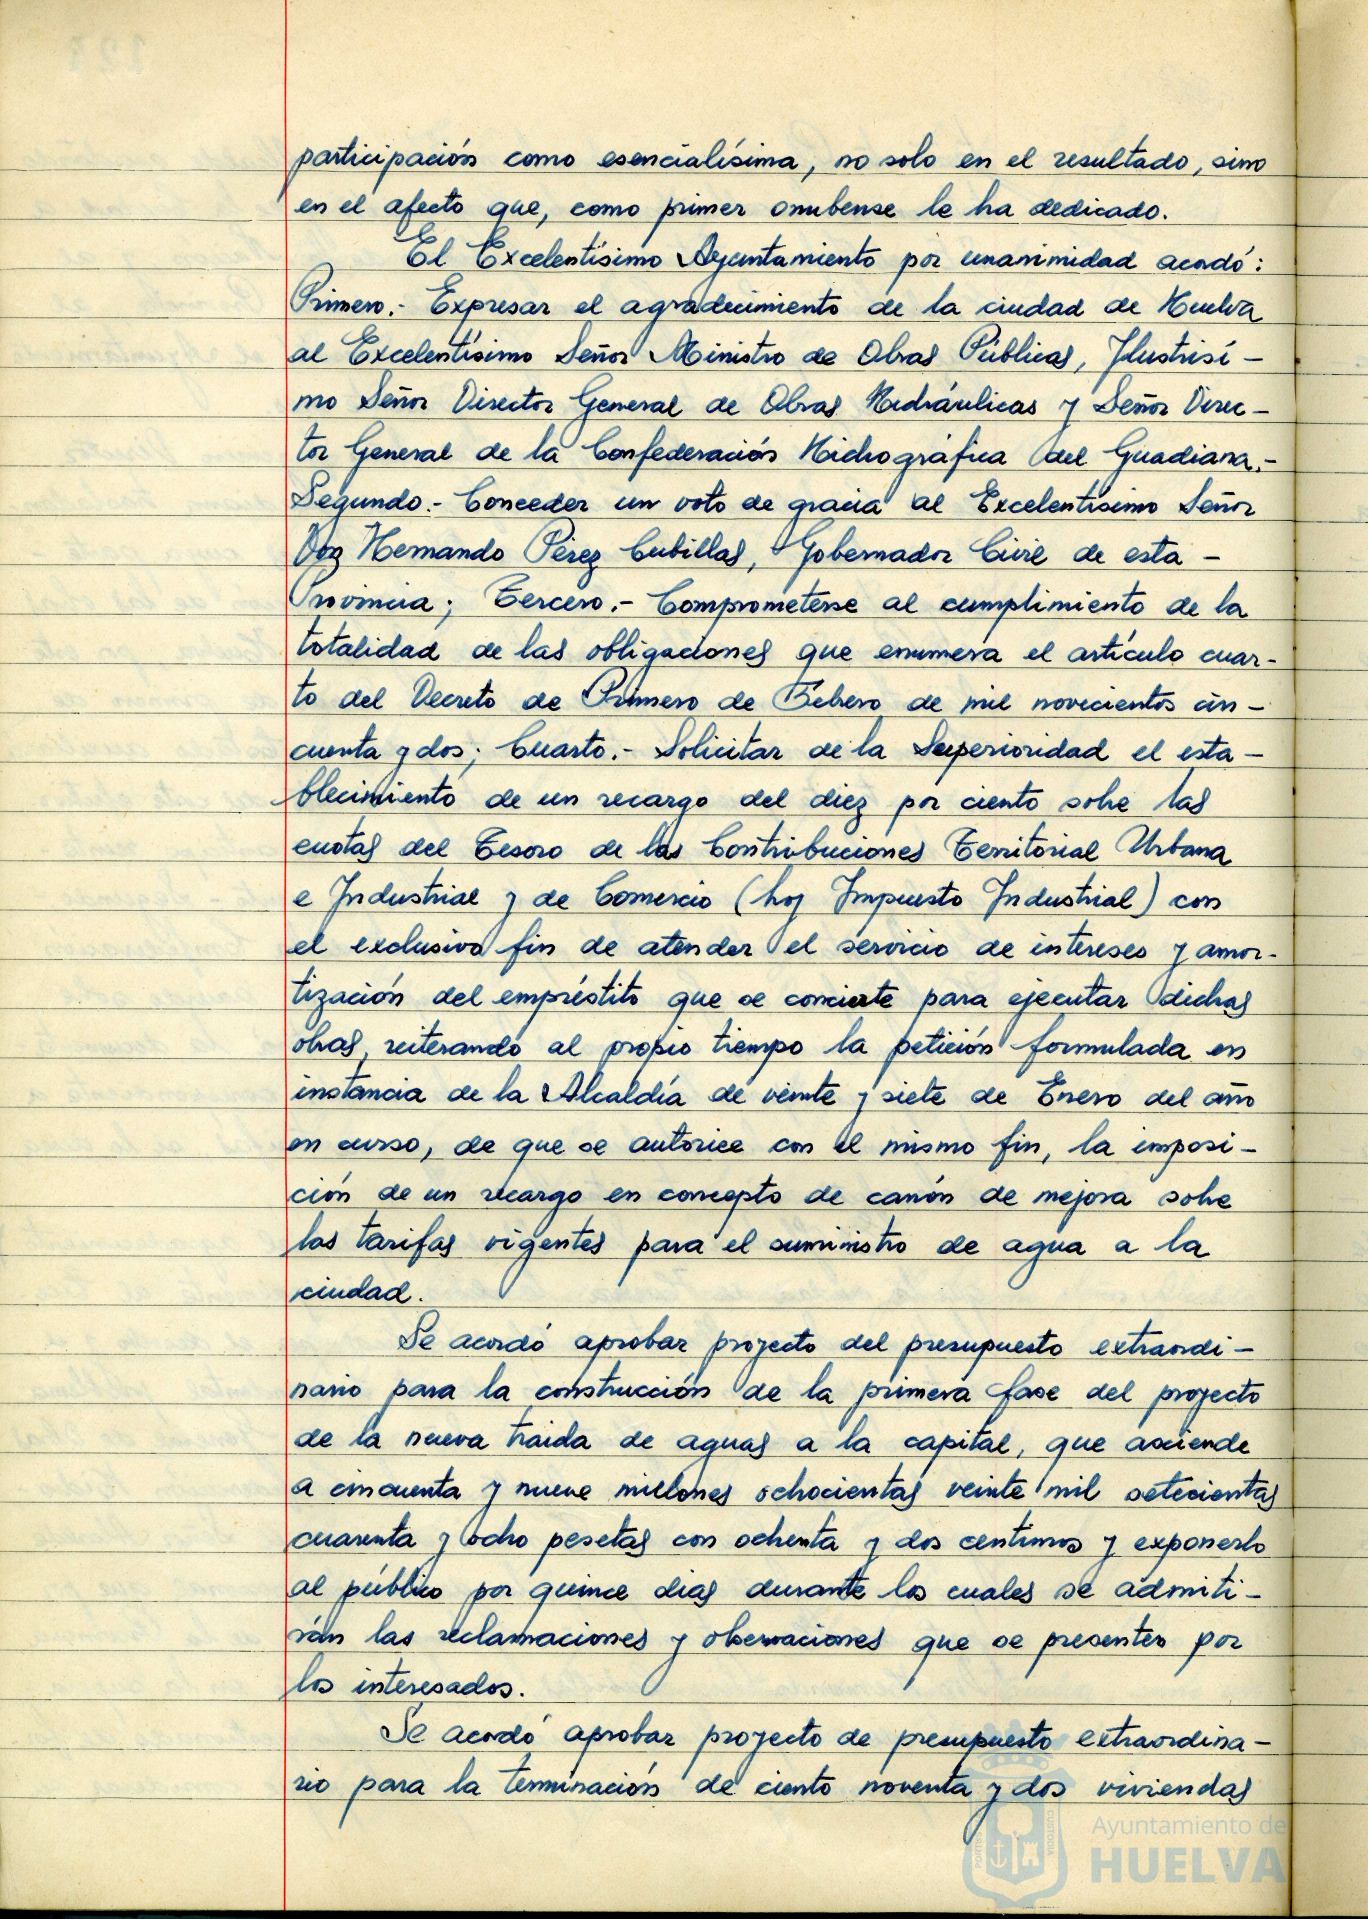 participación como esencialísima, no solo en el resultado, sino
en el afecto que, como primer onubense le ha dedicado.
El Excelentísimo Ayuntamiento por unanimidad acordó:
Primero.- Expresar el agradecimiento de la ciudad de Huelva
al Excelentísimo Señor Ministro de Obras Públicas, Ilustrisí-
mo Señor Director General de Obras Hidráulicas y Señor Direc-
tor General de la Confederación Hidrográfica del Guadiana.-
Segundo.- Conceder un voto de gracia al Excelentísimo Señor
Don Hernando Pérez Cubillas, Gobernador Civil de esta -
Provincia; Tercero.- Comprometerse al cumplimiento de la
totalidad de las obligaciones que enumera el artículo cuar-
to del Decreto de Primero de Febrero de mil novecientos cin-
cuenta y dos; Cuarto.- Solicitar de la Superioridad el esta-
blecimiento de un recargo del diez por ciento sobre las
cuotas del Tesoro de las Contribuciones Territorial Urbana
e Industrial y de Comercio (hoy Impuesto Industrial) con
el exclusivo fin de atender el servicio de intereses y amor-
tización del empréstito que se concierte para ejecutar dichas
obras, reiterando al propio tiempo la petición formulada en
instancia de la Alcaldía de veinte y siete de Enero del año
en curso, de que se autorice con el mismo fin, la imposi-
ción de un recargo en concepto de canón de mejora sobre
las tarifas vigentes para el suministro de agua a la
ciudad.
Se acordó aprobar proyecto del presupuesto extraordi-
nario para la construcción de la primera fase del proyecto
de la nueva traida de aguas a la capital, que asciende
a cincuenta y nueve millones ochocientas veinte mil setecientas
cuarenta y ocho pesetas con ochenta y dos centimos y exponerlo
al público por quince dias durante los cuales se admiti-
rán las reclamaciones y observaciones que se presenten por
los interesados.
Se acordó aprobar proyecto de presupuesto extraordina-
rio para la terminación de ciento noventa y dos viviendas
Ayuntamiento de
HUELVA